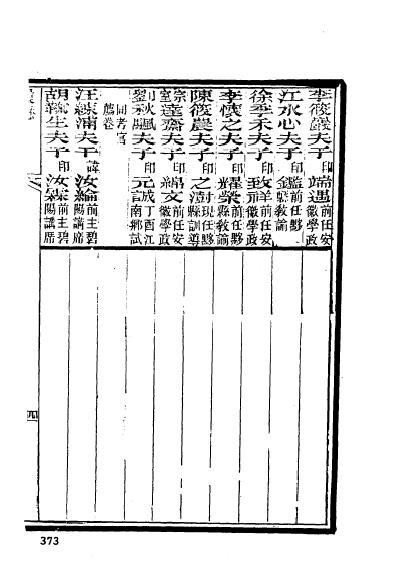 李筱巖夫子印端遇前任安徽學政
江水心夫子印鑑前任黟縣教諭
徐季禾夫子印致祥前任安徽學政
李懷之夫子印耀榮前任黟縣教諭
陳筱農夫子印之澍現任黟縣訓導
宗室達齋夫子印文前任安徽學政
劉秋颿夫子印元丁酉江南鄉試
同考官薦卷
汪浦夫子諱汝綸前主碧陽講席
胡生夫子印汝前主碧陽講席
四
373